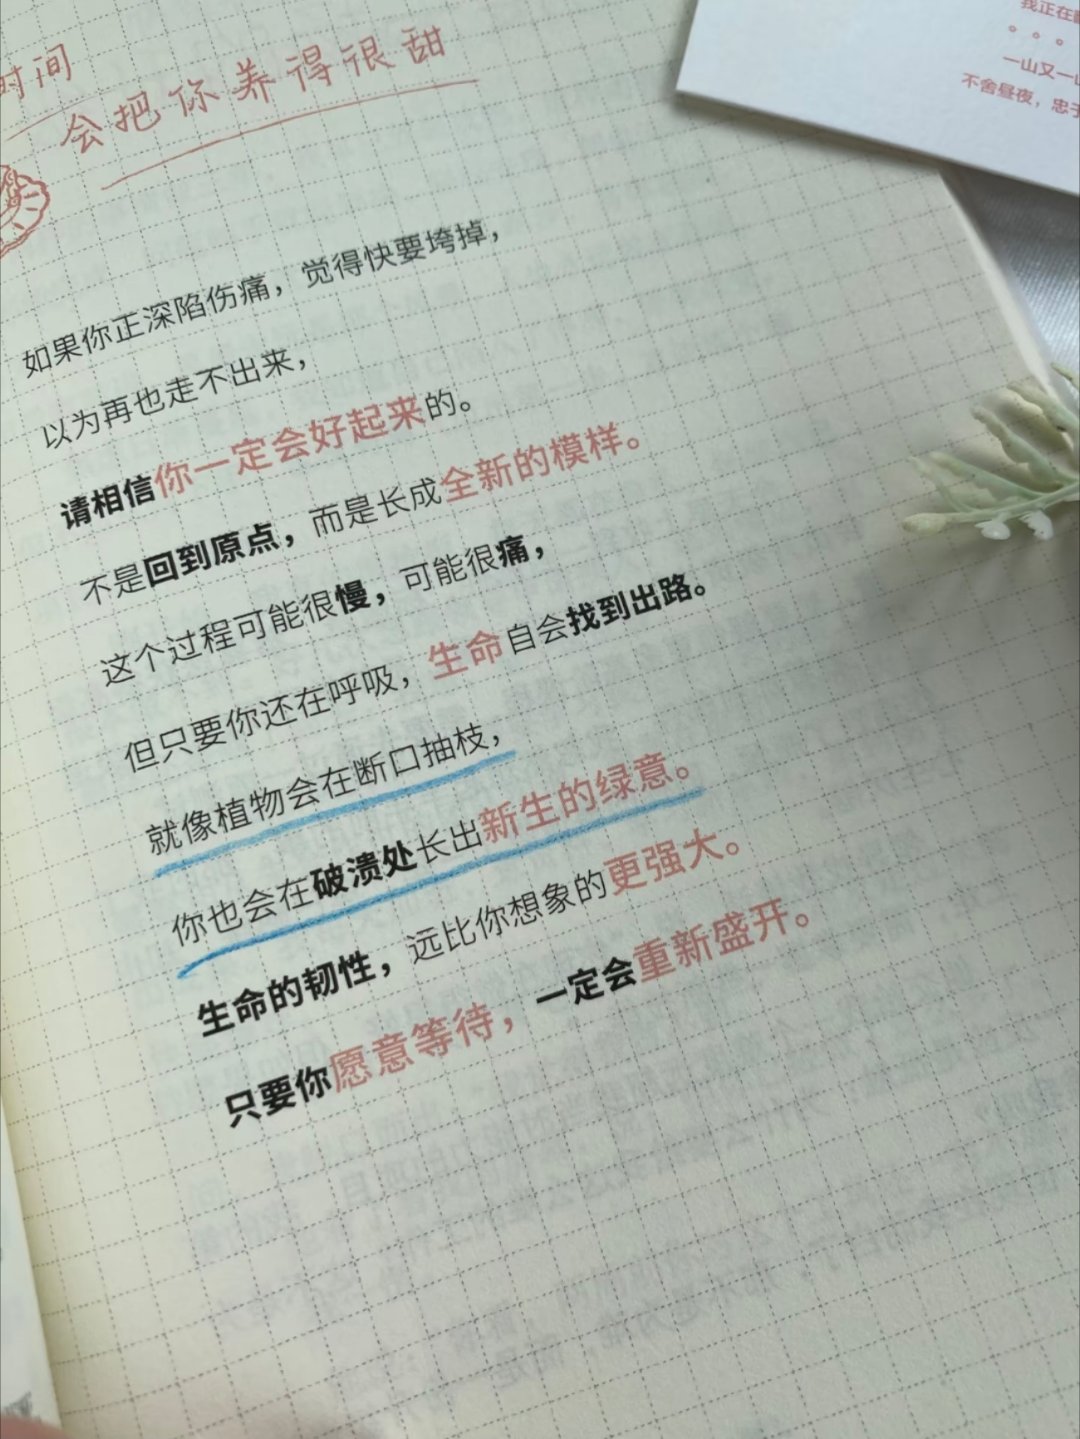 时间
会把你养得很甜
如果你正深陷伤痛，觉得快要垮掉，
以为再也走不出来，
请相信你一定会好起来的。
不是回到原点，而是长成全新的模样。
这个过程可能很慢，可能很痛，
但只要你还在呼吸，生命自会找到出路。
就像植物会在断口抽枝，
你也会在破溃处长出新生的绿意。
生命的韧性，远比你想象的更强大。
只要你愿意等待，一定会重新盛开。
我正在
。。。
一山又一
不舍昼夜，忠